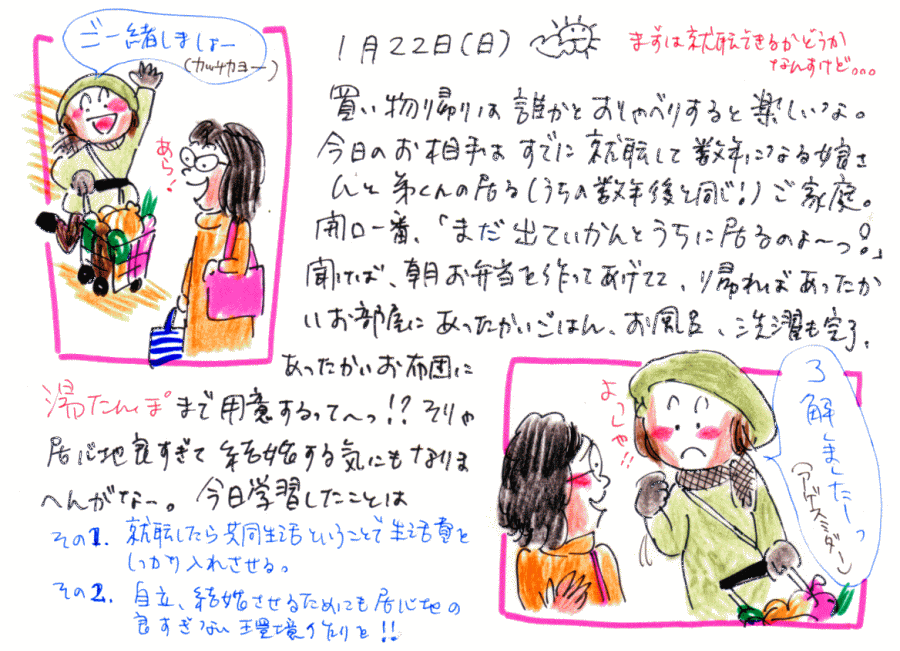 ご一緒しましょー
(カッチカヨー)
あら!
1月22日(日)
まずは就転できるかどうか
なんすけど。。。
買い物帰りは誰かとおしゃべりすると楽しいな。
今日のお相手はすでに就転して数年になる娘さ
んと弟くんの居る(うちの数年後と同じ!)ご家庭。
開口一番、「まだ出ていかんとうちに居るのよ〜っ!」
聞けば、朝お弁当を作ってあげてて、帰ればあったか
いお部屋にあったかいごはん、お風呂、洗濯も完了、
あったかいお布団に
湯たんぽまで用意するって〜っ!?そりゃ
居心地良すぎて結婚する気にもなりま
へんがなー。今日学習したことは
その1. 就転したら共同生活ということで生活費を
しっかり入れさせる。
その2. 自立、結婚させるためにも居心地の
良すぎない環境作りを!!
よっしゃ!!
了解ましたーっ
(アゲスミダー)